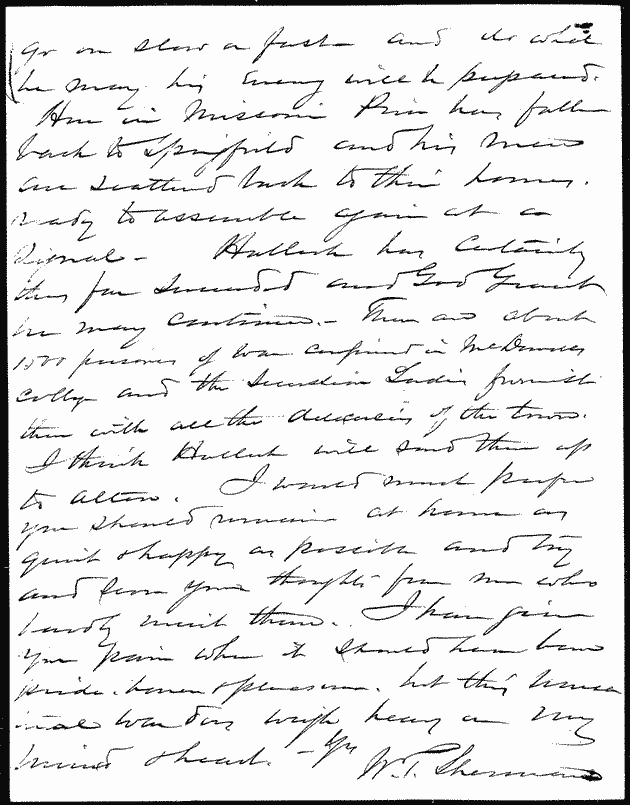 go on slow or fast and do what
he may his Enemy will be prepared.
Here in Missouri Price has fallen
back to Springfield and his men
are scattered back to their homes.
ready to assemble again at a
signal - Halleck has certainly
thus far succeeded and God Grant
he may continue. - There are about
1500 prisoners of War confined in McDowell's
college and the Secession Ladies furnish
them with all the delicacies of the town.
I think Halleck will send them up
to Alton. I would much prefer
you should remain at home as
quiet & happy as possible and try
and your thoughts from me who
hardly merit them. I have given
you pain when it should have been
pride honor & pleasure. but this
War does weigh heavy on my
mind & heart. - Yrs
W. T. Sherman